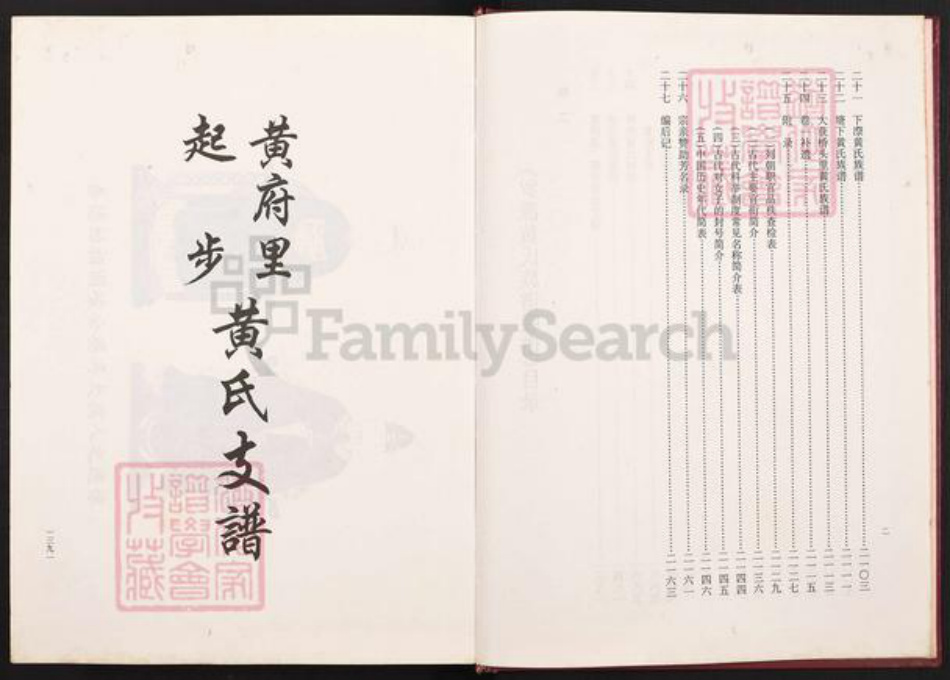 二十一 下漈黄氏族谱 二一〇三
二十二 黄氏族谱 二一一一
二十三 大 桥头里黄氏族谱 二一一三
二十四 卷 补遗 二一一五
二十五 附录 二一二七
(一)列朝职官品秩查检表 二一二九
(二)古代主要官衔简介 二一三六
(三)古代科举制度常见名称简介表 二一四四
(四)古代对女子的封号简介 二一四五
(五)中国历史年代简表 二一四六
二十六 宗亲赞助芳名录 二一六一
二十七 编后记 二一六三
二
黄府里
起步
黄氏支譜
一三九一
譜學會
收藏
FamilySearch